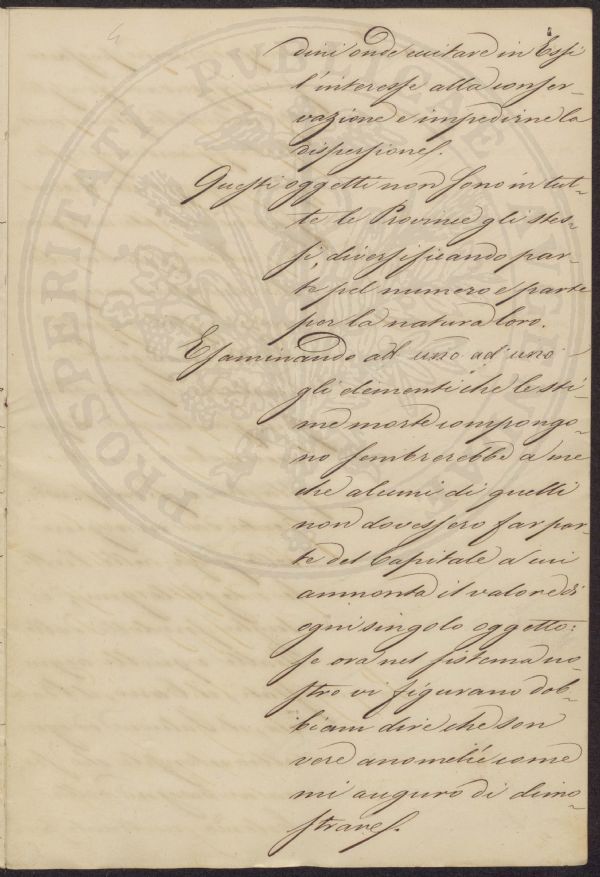 dini onde eccitare in Essi
l'interesse alla conser-
vazione e impedirne la
dispersione.
Questi oggetti non sono in tut-
te le Provincie gli stes-
si diversificando par-
te pel numero e parte
per la natura loro.
Esaminando ad uno ad uno
gli elementi che le sti-
me morte compongo-
no sembrerebbe a me
che alcuni di quelli
non dovessero far par-
te del Capitale a cui
ammonta il valore di
ogni singolo oggetto:
se ora nel sistema no-
stro vi figurano dob-
biam dire che son
vere anomelie come
mi auguro di dimo-
strare.
PROSPERITATI PUBLICAE AUGENDAE